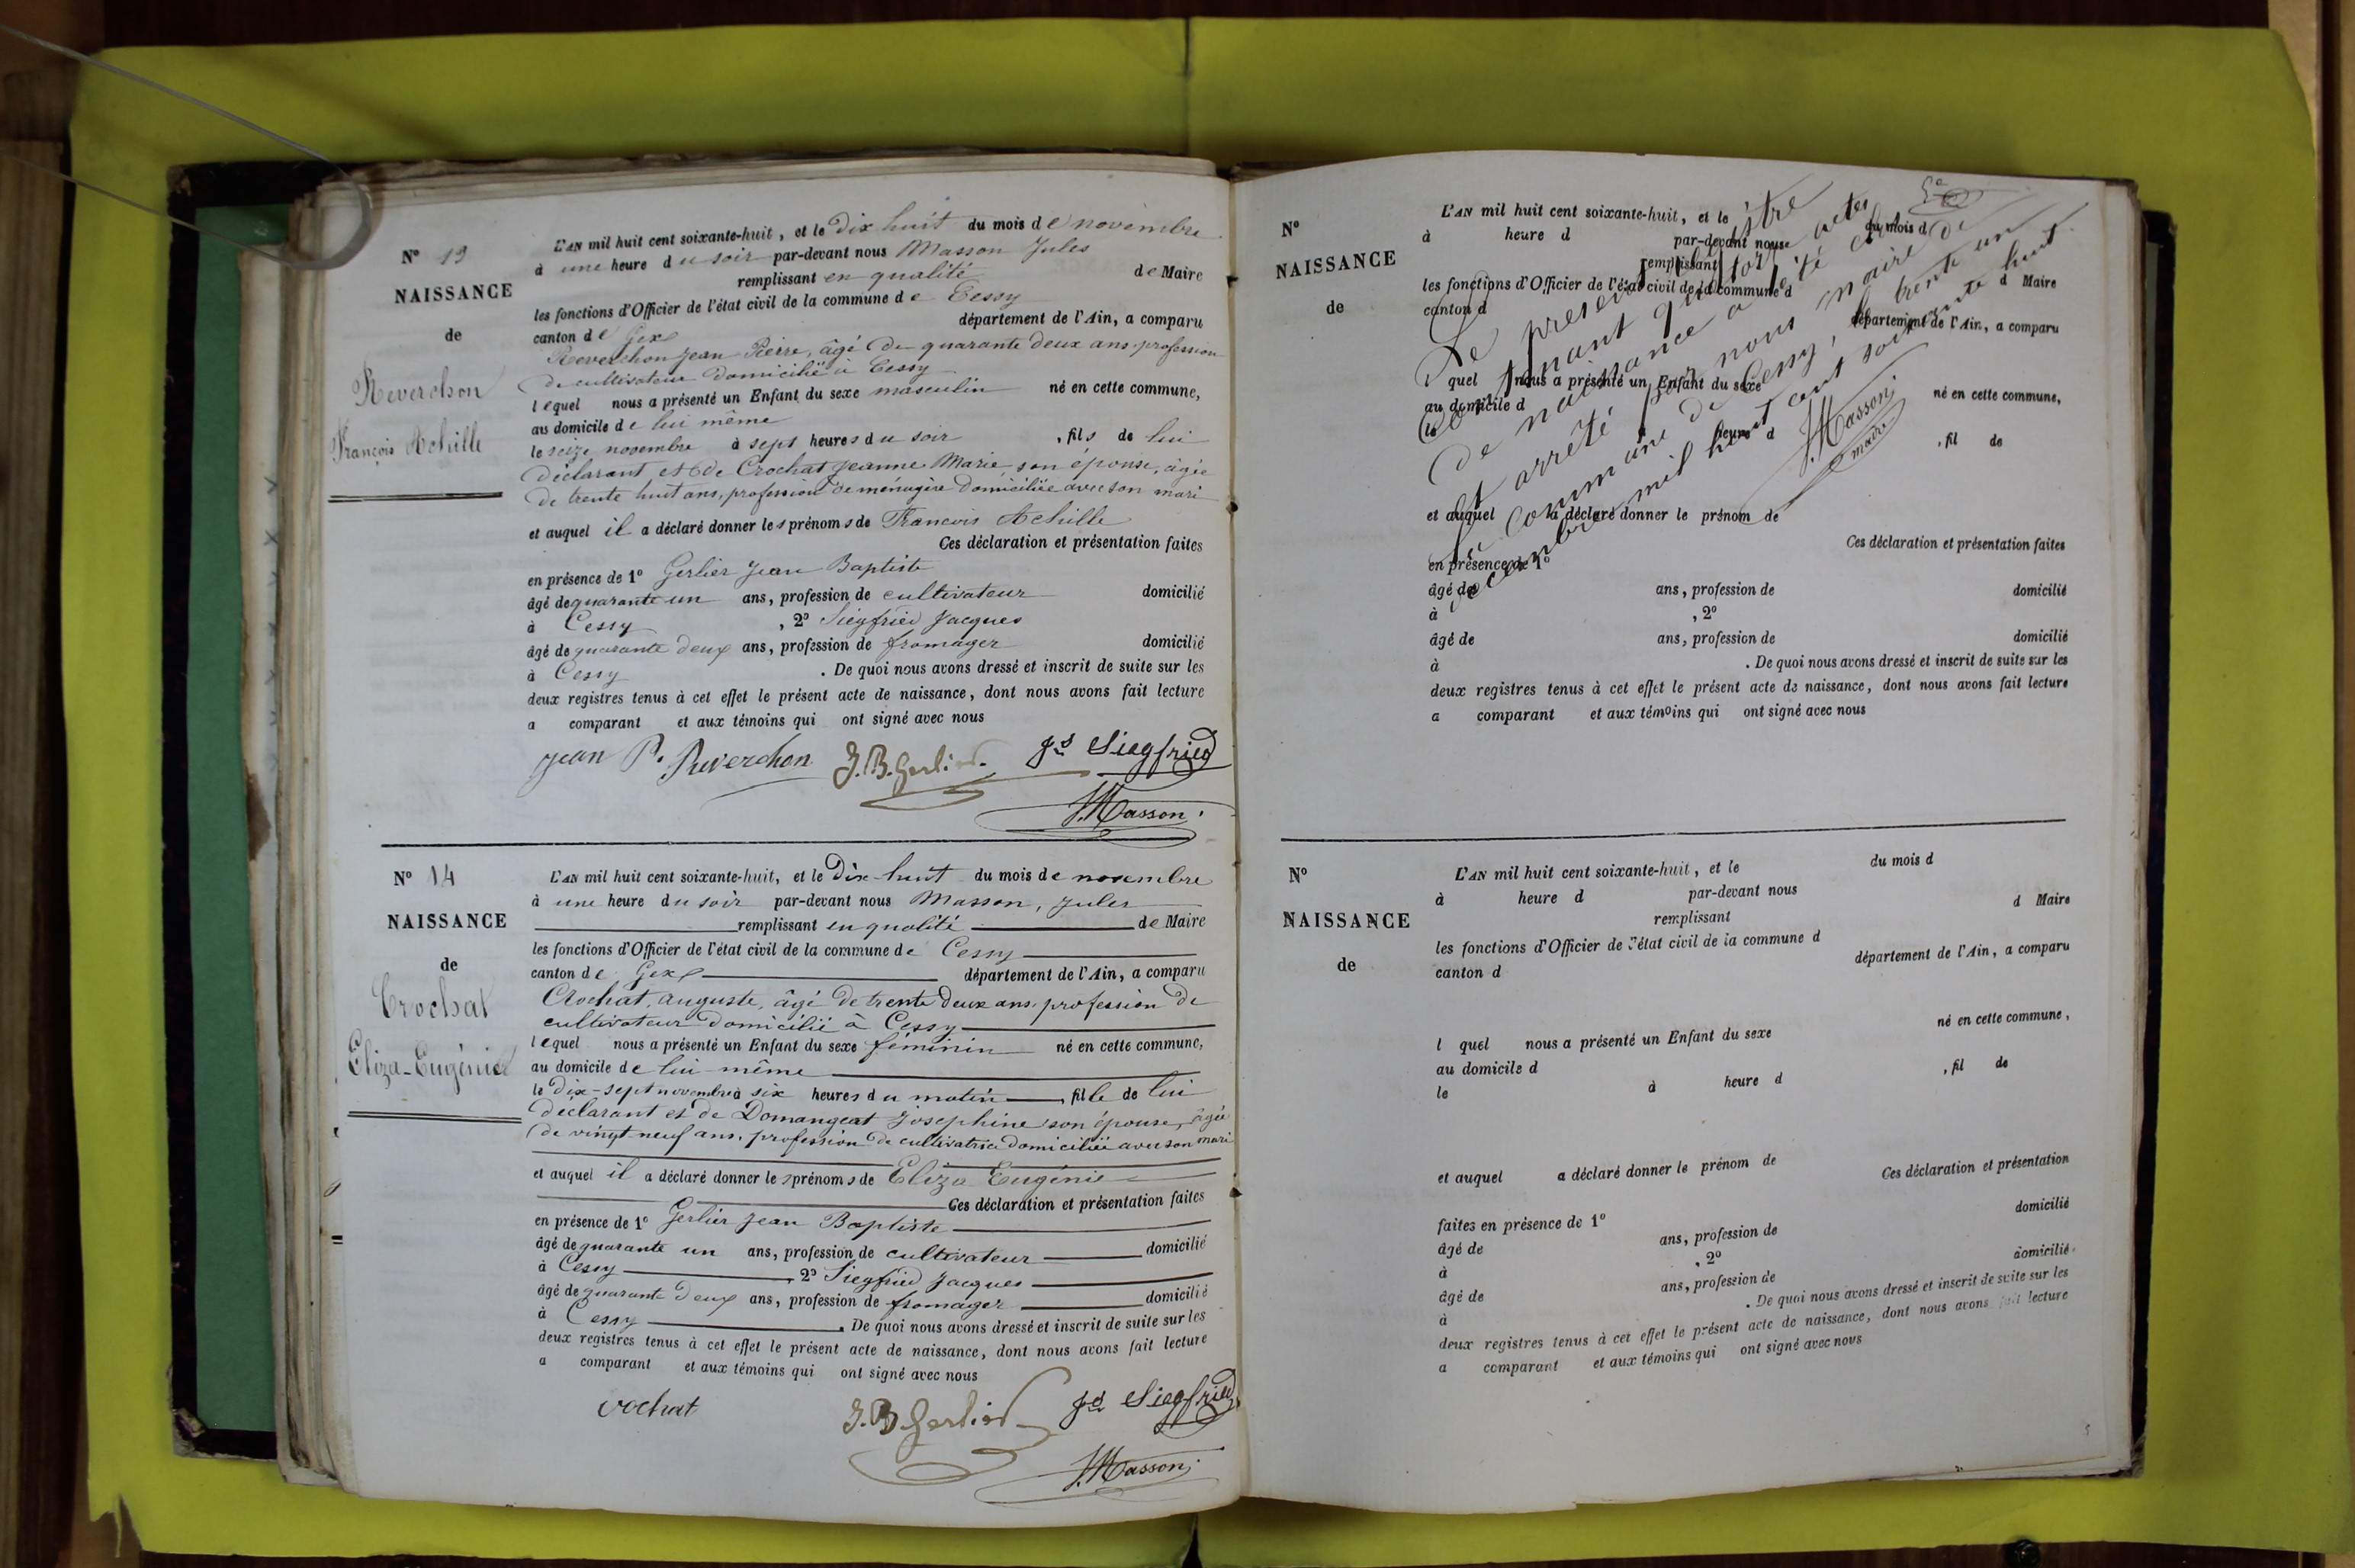 N° 13
NAISSANCE
de
Reverchon
François Achille
L'AN mil huit cent soixante-huit, et le Dix huit du mois de novembre
à une heure du soir par-devant nous Masson Jules
remplissant en qualité de Maire
les fonctions d'Officier de l'état civil de la commune de Cessy
canton de Gex département de l'Ain, a comparu
Reverchon Jean Pierre, âgé de quarante deux ans, profession
de cultivateur domicilié à Cessy
lequel nous a présenté un Enfant du sexe masculin né en cette commune,
au domicile de lui même
le seize novembre à sept heures du soir, fils de lui
déclarant et de Crochat Jeanne Marie, son épouse, âgée
de trente huit ans, profession de ménagère domiciliée avec son mari
et auquel il a déclaré donner les prénoms de François Achille
Ces déclaration et présentation faites
en présence de 1° Gerlier Jean Baptiste
âgé de quarante un ans, profession de cultivateur domicilié
à Cessy, 2° Siegfried Jacques
âgé de quarante deux ans, profession de fromager domicilié
à Cessy. De quoi nous avons dressé et inscrit de suite sur les
deux registres tenus à cet effet le présent acte de naissance, dont nous avons fait lecture
a comparant et aux témoins qui ont signé avec nous
Jean P. Reverchon J.B. Gerlier Js Siegfried
J. Masson
N° 14
NAISSANCE
de
Crochat
Eliza-Eugénie
L'AN mil huit cent soixante-huit, et le Dix-huit du mois de novembre
à une heure du soir par-devant nous Masson, Jules
remplissant en qualité de Maire
les fonctions d'Officier de l'état civil de la commune de Cessy
canton de Gex département de l'Ain, a comparu
Crochat, auguste, âgé de trente deux ans, profession de
cultivateur domicilié à Cessy
lequel nous a présenté un Enfant du sexe féminin né en cette commune,
au domicile de lui-même
le Dix-sept novembre à six heures du matin, fille de lui
déclarant et de Domangeat Josephine son épouse, âgée
de vingt neuf ans, profession de cultivatrice domiciliée avec son mari
et auquel il a déclaré donner les prénoms de Eliza Eugénie
Ces déclaration et présentation faites
en présence de 1° Gerlier Jean Baptiste
âgé de quarante un ans, profession de cultivateur domicilié
à Cessy, 2° Siegfried Jacques
âgé de quarante deux ans, profession de fromager domicilié
à Cessy. De quoi nous avons dressé et inscrit de suite sur les
deux registres tenus à cet effet le présent acte de naissance, dont nous avons fait lecture
a comparant et aux témoins qui ont signé avec nous
crochat J.B. Gerlier Js Siegfried
J. Masson
N°
NAISSANCE
de
L'AN mil huit cent soixante-huit, et le du mois d
à heure d par-devant nous
remplissant d Maire
les fonctions d'Officier de l'état civil de la commune d
canton d département de l'Ain, a comparu
l quel nous a présenté un Enfant du sexe né en cette commune,
au domicile d
le à heure d , fil de
et auquel a déclaré donner le prénom de
Ces déclaration et présentation faites
en présence de 1°
âgé de ans, profession de domicilié
à , 2°
âgé de ans, profession de domicilié
à . De quoi nous avons dressé et inscrit de suite sur les
deux registres tenus à cet effet le présent acte de naissance, dont nous avons fait lecture
a comparant et aux témoins qui ont signé avec nous
Le présent registre
contenant quatorze actes
de naissance a été clos
et arrêté par nous maire de
la commune de Cessy, le trente un
décembre mil huit cent soixante huit
J. Masson
maire
N°
NAISSANCE
de
L'AN mil huit cent soixante-huit, et le du mois d
à heure d par-devant nous
remplissant d Maire
les fonctions d'Officier de l'état civil de la commune d
canton d département de l'Ain, a comparu
l quel nous a présenté un Enfant du sexe né en cette commune,
au domicile d
le à heure d , fil de
et auquel a déclaré donner le prénom de
Ces déclaration et présentation
faites en présence de 1° domicilié
âgé de ans, profession de
à , 2° domicilié
âgé de ans, profession de
à . De quoi nous avons dressé et inscrit de suite sur les
deux registres tenus à cet effet le présent acte de naissance, dont nous avons fait lecture
a comparant et aux témoins qui ont signé avec nous